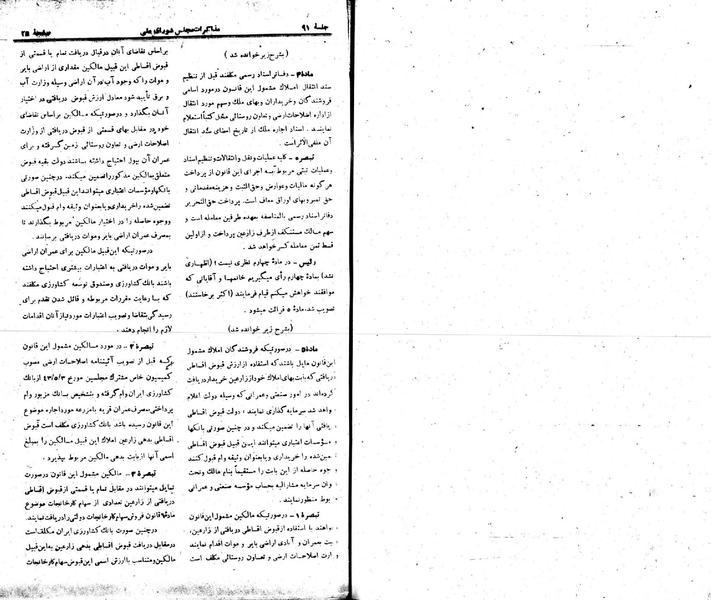 جلسه ۹۱
مذاکرات مجلس شورای ملی
صفحه ۲۵
(بشرح زیر خوانده شد)
ماده ۴ـ دفاتر اسناد رسمی مکلفند قبل از تنظیم
سند انتقال املاک مشمول این قانون در مورد اسامی
فروشندگان و خریداران و بهای ملک و سهم مورد انتقال
از اداره اصلاحات ارضی و تعاون روستائی محل کتباً استعلام
نمایند. اسناد اجاره ملک از تاریخ امضای سند انتقال
آن ملغی الاثر است.
تبصره ـ کلیه عملیات و نقل و انتقالات و تنظیم اسناد
و عملیات ثبتی مربوط به اجرای این قانون از پرداخت
هرگونه مالیات و عوارض و حق الثبت و هزینه مقدماتی و
حق تمبر و بهای اوراق معاف است. پرداخت حق التحریر
دفاتر اسناد رسمی بالمناصفه بعهده طرفین معامله است و
سهم مالک مستنکف از طرف زارعین پرداخت و از اولین
قسط ثمن معامله کسر خواهد شد.
رئیس ـ در ماده چهارم نظری نیست؟ (اظهاری
نشد) بماده چهارم رأی میگیریم خانمها و آقایانی که
موافقند خواهش میکنم قیام فرمایند (اکثر برخاستند)
تصویب شد، ماده ۵ قرائت میشود.
(بشرح زیر خوانده شد)
ماده ۵ـ در صورتیکه فروشندگان املاک مشمول
این قانون مایل باشند که استفاده از ارزش قبوض اقساطی
دریافتی که بابت بهای املاک خود از زارعین خریدار دریافت
کرده‌اند در امور صنعتی و عمرانی که بوسیله دولت اعلام
واهد شد سرمایه گذاری نمایند، دولت قبوض اقساطی
یافتی آنها را تضمین میکند و در چنین صورتی بانکها
مؤسسات اعتباری میتوانند این قبیل قبوض اقساطی
مین شده را خریداری و یا بعنوان وثیقه وام قبول کنند
جوه حاصله از این بابت را مستقیماً بنام مالک و تحت
وان سرمایه مشارالیه بحساب مؤسسه صنعتی و عمرانی
بوط منظور نمایند.
تبصره ۱ـ در صورتیکه مالکین مشمول این قانون
واهند با استفاده از قبوض اقساطی دریافتی از زارعین،
بت بعمران و آبادی اراضی بایر و موات اقدام نمایند
ارت اصلاحات ارضی و تعاون روستائی مکلف است
براساس تقاضای آنان در قبال دریافت تمام یا قسمتی از
قبوض اقساطی این قبیل مالکین مقداری از اراضی بایر
و موات را که وجود آب در آن اراضی وسیله وزارت آب
و برق تأیید شود معادل ارزش قبوض دریافتی در اختیار
آنان بگذارد و در صورتیکه مالکین براساس تقاضای
خود در مقابل بهای قسمتی از قبوض دریافتی از وزارت
اصلاحات ارضی و تعاون روستائی زمین گرفته و برای
عمران آن بپول احتیاج داشته باشند دولت بقیه قبوض
متعلق بمالکین مذکور را تضمین میکند. در چنین صورتی
بانکها و مؤسسات اعتباری میتوانند این قبیل قبوض اقساطی
تضمین شده را خریداری و یا بعنوان وثیقه وام قبول میکنند
و وجوه حاصله را در اختیار مالکین مربوط بگذارند تا
بمصرف عمران اراضی بایر و موات دریافتی برسانند.
در صورتیکه این قبیل مالکین برای عمران اراضی
بایر و موات دریافتی به اعتبارات بیشتری احتیاج داشته
باشند بانک کشاورزی و صندوق توسعه کشاورزی مکلفند
که با رعایت مقررات مربوطه و قائل شدن تقدم برای
رسیدگی بتقاضا و تصویب اعتبارات مورد نیاز آنان اقدامات
لازم را انجام دهند.
تبصره ۲ـ در مورد مالکین مشمول این قانون
که قبل از تصویب آئیننامه اصلاحات ارضی مصوب
کمیسیون خاص مشترک مجلسین مورخ ۴۳/۵/۳ از بانک
کشاورزی ایران وام گرفته و بتشخیص بانک مزبور وام
پرداختی بمصرف عمران قریه یا مزرعه مورد اجاره موضوع
این قانون رسیده باشد بانک کشاورزی مکلف است قبوض
اقساطی بدهی زارعین املاک این قبیل مالکین را بمبلغ
اسمی آنها از بابت بدهی مالکین مربوط بپذیرد.
تبصره ۳ـ مالکین مشمول این قانون در صورت
تمایل میتوانند در مقابل تمام یا قسمتی از قبوض اقساطی
دریافتی از زارعین تعدادی از سهام کارخانجات موضوع
ماده ۷ قانون فروش سهام کارخانجات دولتی را دریافت نمایند.
در چنین صورت بانک کشاورزی ایران مکلف است
در مقابل دریافت قبوض اقساطی بدهی زارعین به این قبیل
مالکین و متناسب با ارزش اسمی این قبوض سهام کارخانجات